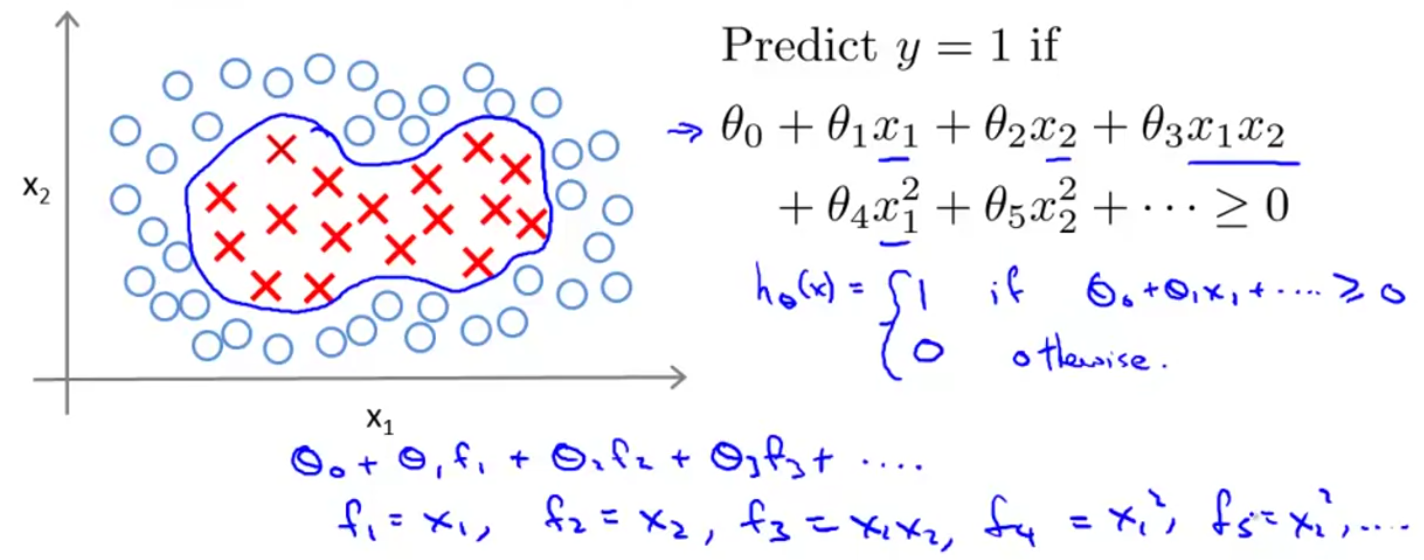 Predict y = 1 if
⇒ θ₀ + θ₁x₁ + θ₂x₂ + θ₃x₁x₂
+ θ₄x₁² + θ₅x₂² + ⋯ ≥ 0
x₂
h_θ(x) = { 1 if θ₀ + θ₁x₁ + .... ≥ 0
0 otherwise.
x₁
θ₀ + θ₁f₁ + θ₂f₂ + θ₃f₃ + ....
f₁ = x₁, f₂ = x₂, f₃ = x₁x₂, f₄ = x₁², f₅ = x₂², ....